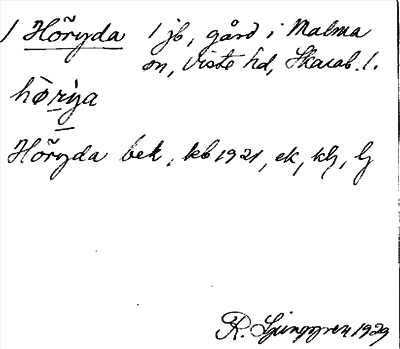 1 Höryda 1 jb, gård i Malma
sn, Viste hd, Skarab. l.
hòrìya
Höryda bek, kb 1921, ek, klj, lj
R. Ljunggren 1929